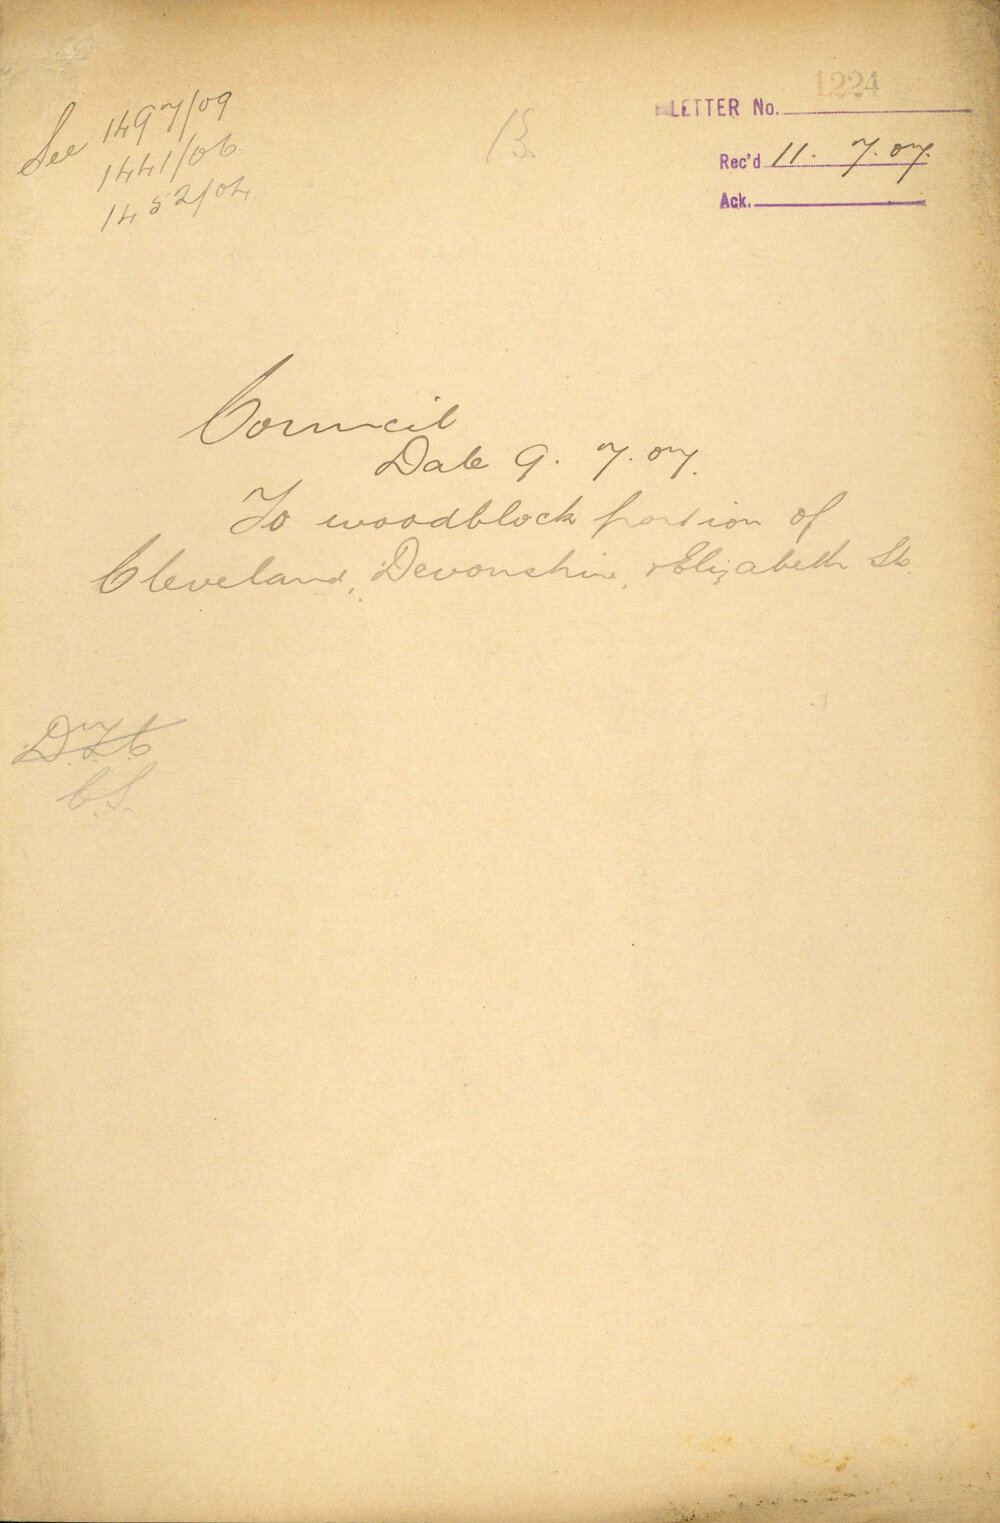 See 1497/09
1441/06
1452/04
1224
LETTER No.
Rec'd 11. 7. 07.
Ack.
Council
Date 9. 7. 07.
To woodblock portion of
Cleveland, Devonshire, & Elizabeth Sts
C.S.